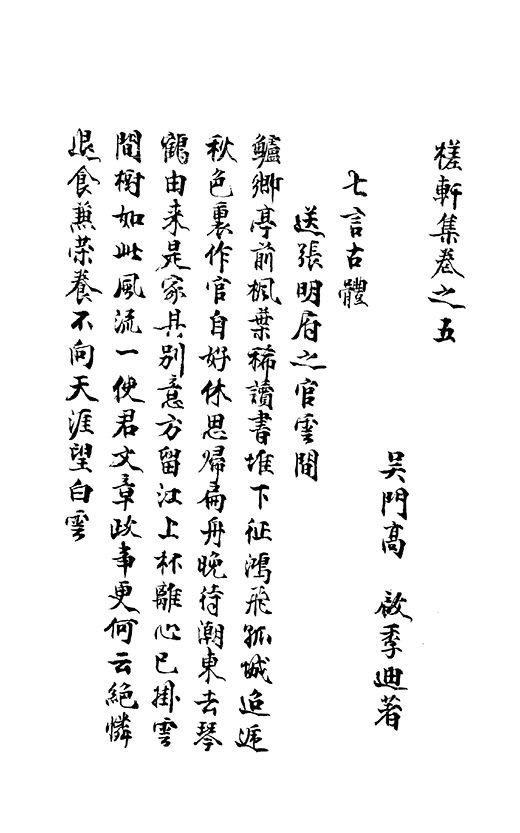 槎軒集卷之五
吴門高 啟季迪著
七言古體
送張明府之官雲間
鱸鄉亭前楓葉稀讀書堆下征鴻飛孤城迢遞
秋色裏作官自好休思歸扁舟晚待潮東去琴
鶴由来是家具別意方留江上杯離心已掛雲
間樹如此風流一使君文章政事更何云絶憐
退食兼荣養不向天涯望白雲